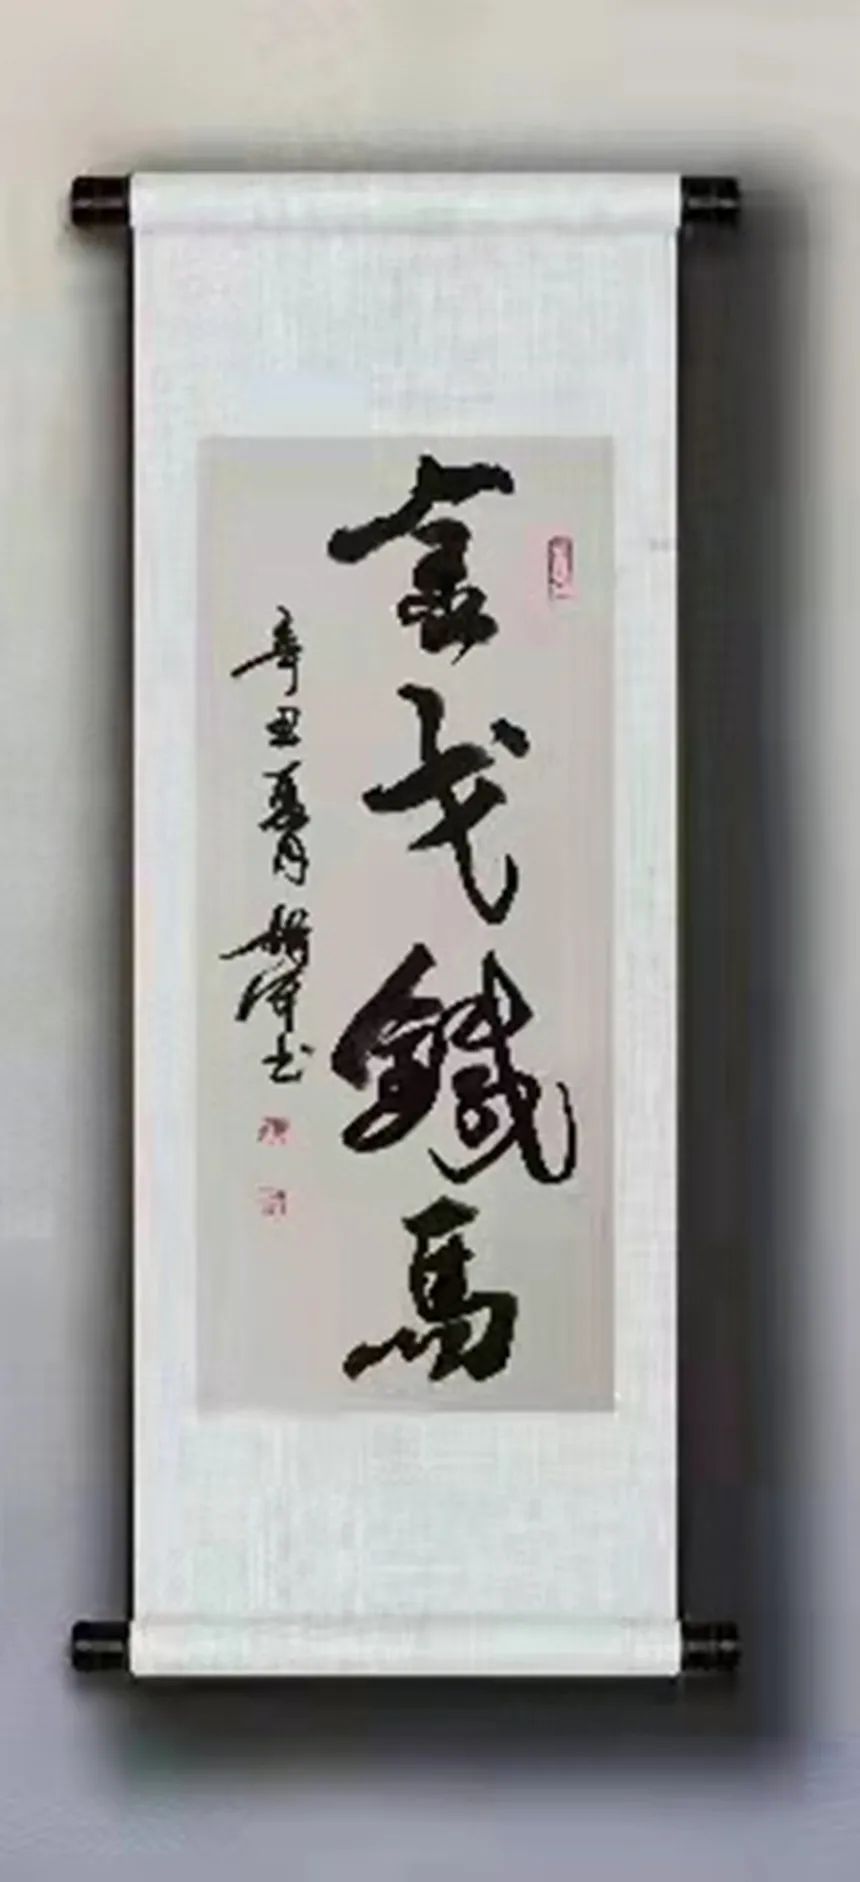 金戈鐵馬
辛丑夏月
书